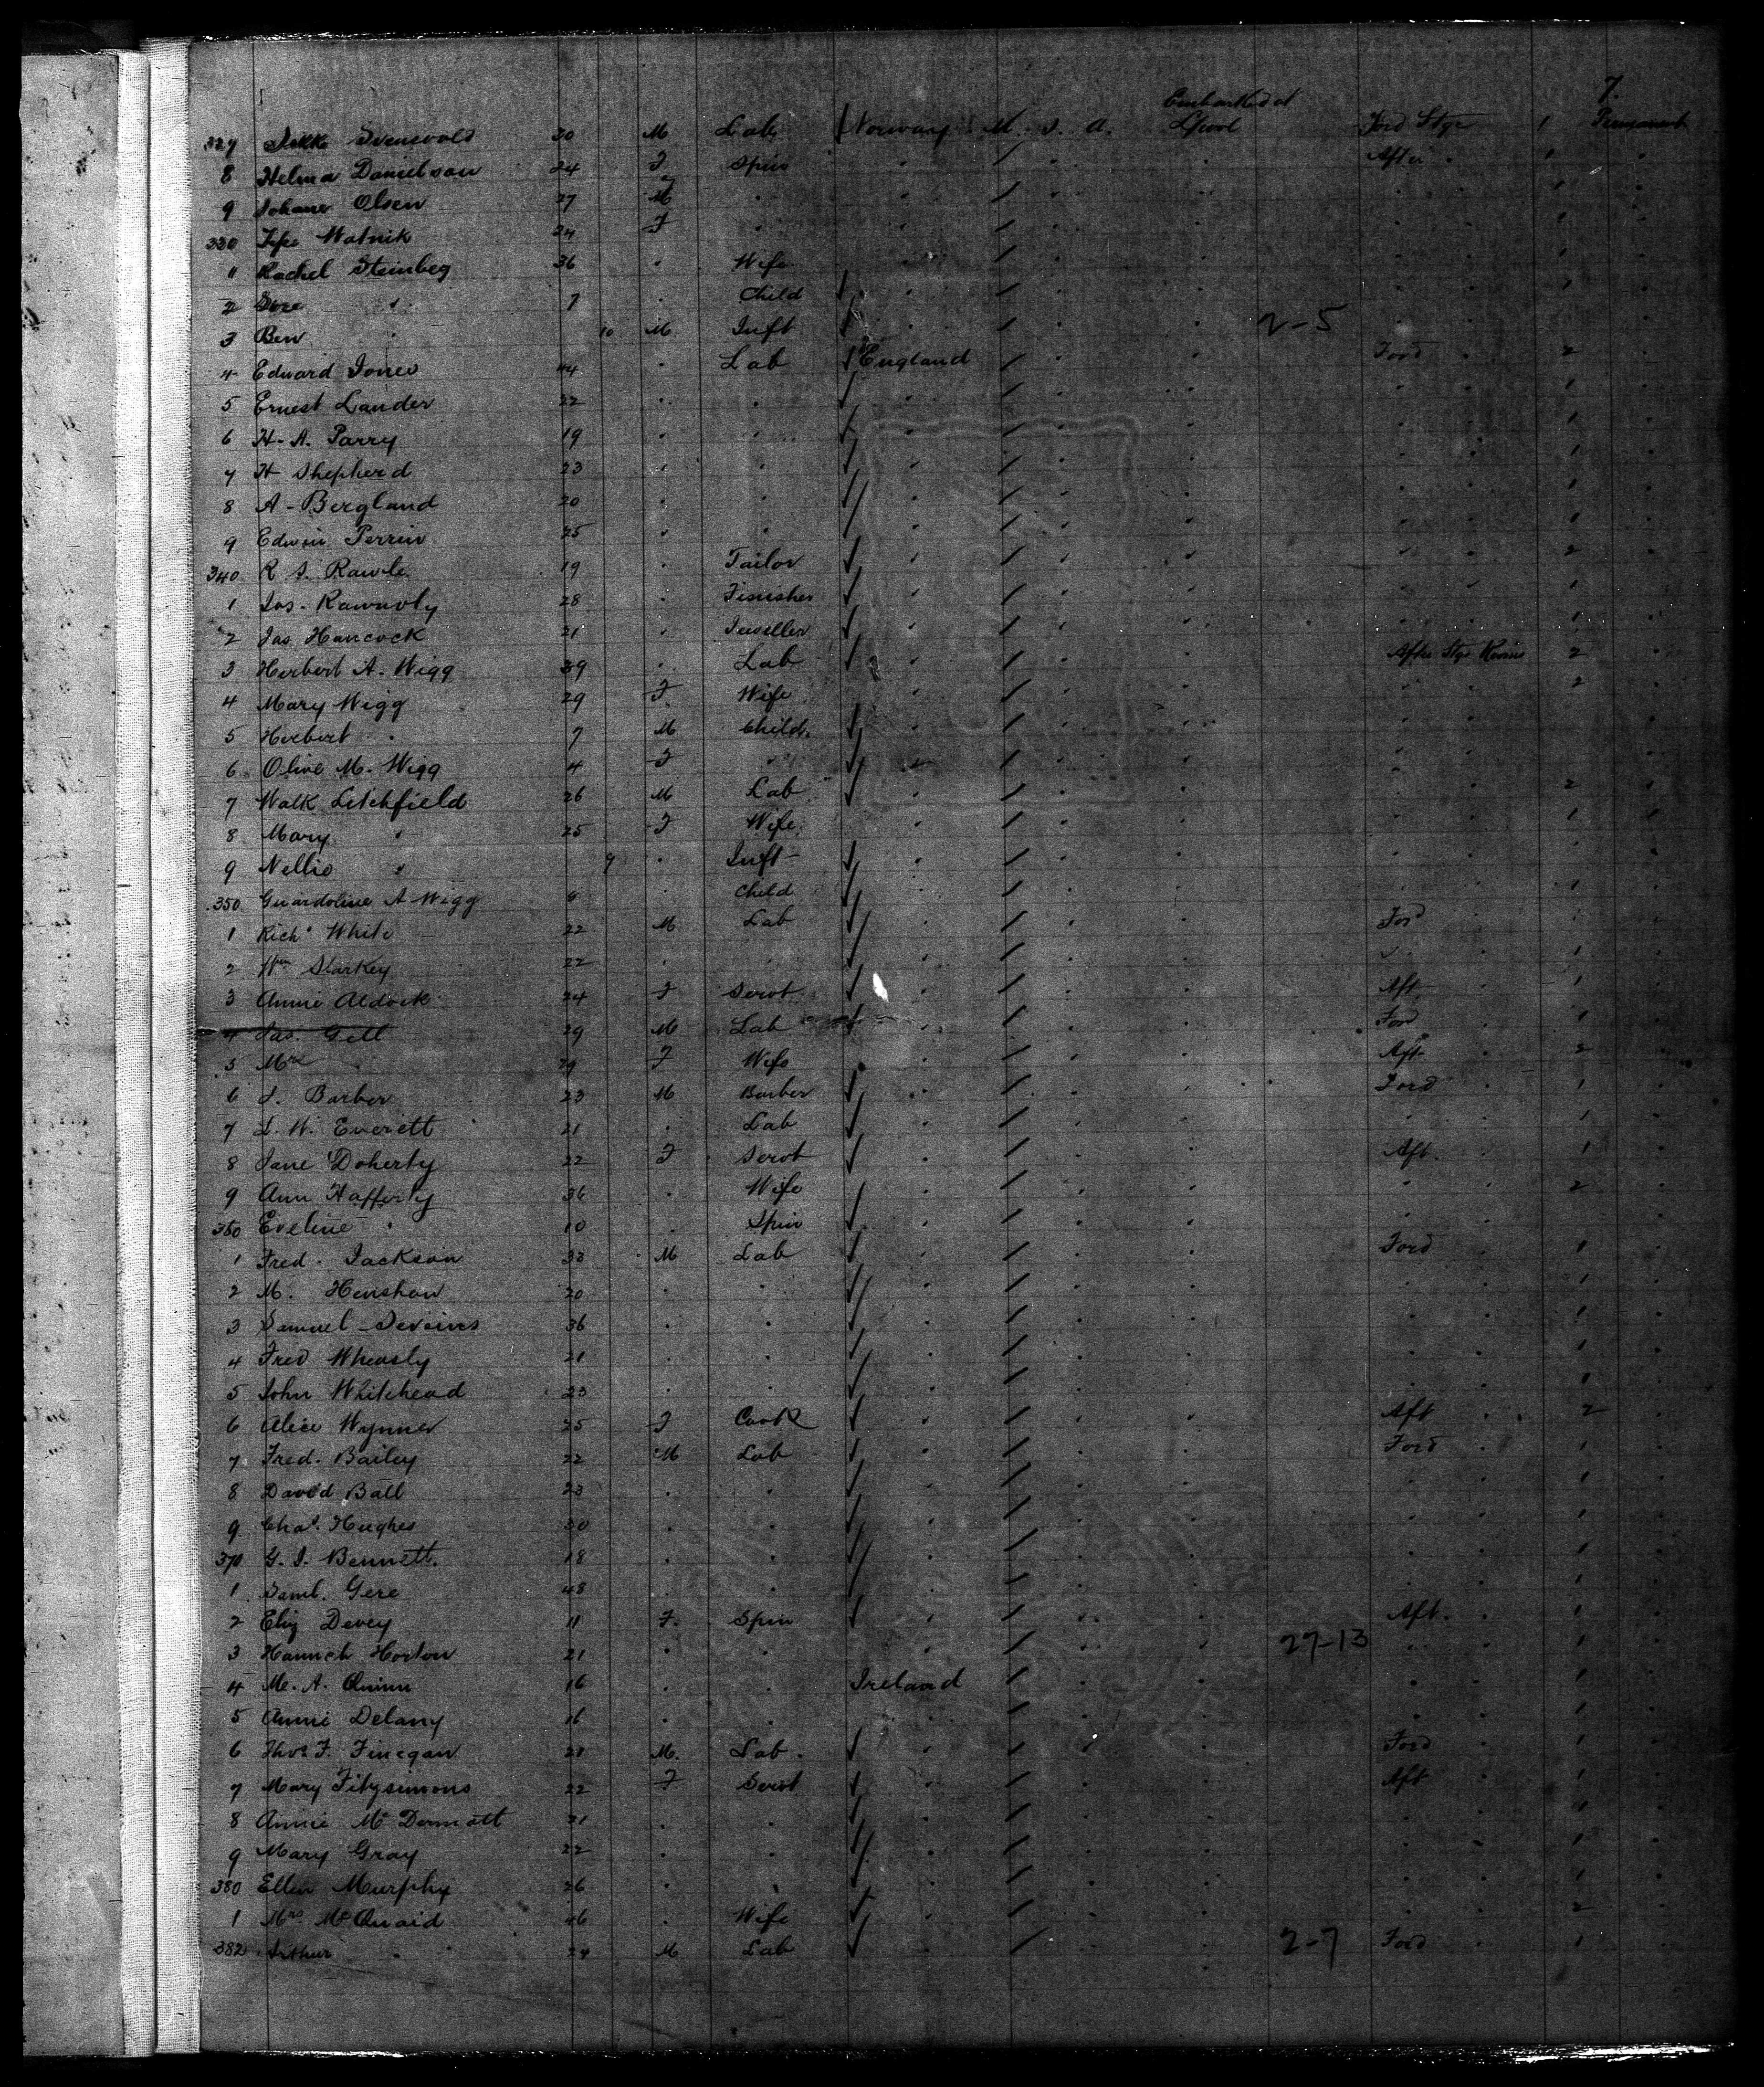 7.
Embarked at
327 Svenswold 30 M Lab Norway U. S. A. L'pool Ford Stge 1 Permanent
8 Helma Danielson 24 F Spin " / " " After " 1 "
9 Johane Olsen 27 " " " / " " " 1 "
330 Watnik 24 F " " / " " " 1 "
11 Rachel Steinbeg 36 " Wife " / " " " 1 "
2 " 7 " Child " / " " " "
3 Ben " 10 M Inft " / " " 2-5 " "
4 Edward Jones 44 " Lab England / " " Ford " 2 "
5 Ernest Lander 22 " " " / " " " 1 "
6 H. A. Parry 19 " " " / " " " 1 "
7 H Shepherd 23 " " " / " " " 1 "
8 A - Bergland 20 " " " / " " " 1 "
9 Edwin Perrin 25 " " " / " " " 1 "
340 R S. Rawle 19 " Tailor " / " " " 2 "
1 Jos. 28 " Finisher " / " " " 1 "
2 Jas Hancock 21 " Jeweller " / " " " 1 "
3 Herbert A. Wigg 39 " Lab " / " " After Stge Rooms 2 "
4 Mary Wigg 29 F. Wife " / " " " 2 "
5 Herbert " 7 M Child. " / " " " "
6 Olive M. Wigg 4 F " " / " " " "
7 Walk Litchfield 26 M Lab " / " " " 2 "
8 Mary " 25 F Wife " / " " " 1 "
9 Nellie " 9 " Inft " / " " " "
350 A Wigg " Child " / " " " 1 "
1 Richd White 22 M Lab " / " " Ford "
2 Wm Starkey 22 " " " / " " " 1 "
3 Annie Aldock 24 F Servt " / " " Aft " 1 "
4 Jas. Gell 29 M Lab " / " " Ford " 1 "
5 Mrs " 29 F Wife " / " " Aft " 2 "
6 J. Barber 23 M Barber " / " " Ford " 1 "
7 L. W. Everett 21 " Lab " / " " " 1 "
8 Jane Doherty 22 F Servt " / " " Aft. " 1 "
9 Ann Hafferty 36 " Wife " / " " " 2 "
360 Eveline " 10 " Spin " / " " " "
1 Fred. Jackson 33 M Lab " / " " Ford " 1 "
2 M. Henshaw 20 " " " / " " " 1 "
3 Samuel 36 " " " / " " " 1 "
4 Fred Wheasly 21 " " " / " " " 1 "
5 John Whitehead 23 " " " / " " " 1 "
6 Alice Wynner 25 F Cook " / " " Aft " 2 "
7 Fred. Bailey 22 M Lab " / " " Ford " 1 "
8 David Ball 23 " " " / " " " 1 "
9 Chas. Hughes 30 " " " / " " " 1 "
370 G. J. Bennett. 18 " " " / " " " 1 "
1 Saml. Gere 48 " " " / " " " 1 "
2 Eliz Devey 11 F. Spin " / " " Aft. " 1 "
3 Hannah Horton 21 " " " / " " 27-13 " 1 "
4 M. A. Quinn 16 " " Ireland / " " " 1 "
5 Annie Delany 16 " " " / " " " 1 "
6 Thos F. Finegan 21 M. Lab. " / " " Ford " 1 "
7 Mary Fitzsimons 22 F Servt " / " " Aft " 1 "
8 Annie McDermott 21 " " " / " " " 1 "
9 Mary Gray 22 " " " / " " " 1 "
380 Ellen Murphy 26 " " " / " " " 1 "
1 Mrs McQuaid 46 " Wife " / " " " 2 "
382 Arthur " 24 M Lab " / " " 2-7 Ford " 1 "